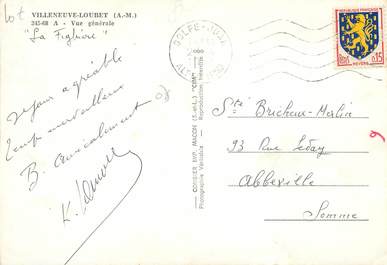 Lot
VILLENEUVE-LOUBET (A.-M.)
245-68 A - Vue générale
"La Figlière"
Séjour agréable
Temps merveilleux
B. Amicalement
COMBIER IMP. MACON (S.-et-L.) "CIM"
Photographie Véritable - Reproduction Interdite
GOLFE-JUAN
REPUBLIQUE FRANÇAISE
0,15
NEVERS
Sté Bricheux-Merlin
93 Rue Leday
Abbeville
Somme